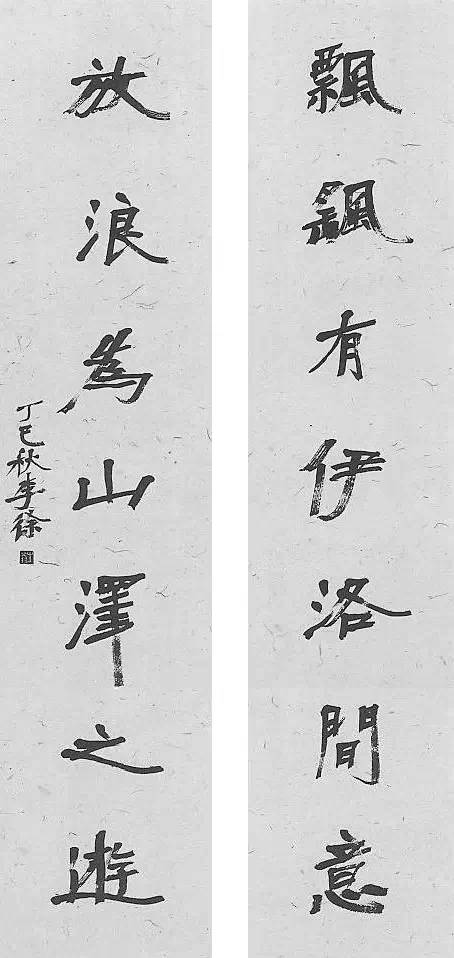 飄颻有伊洛間意
放浪為山澤之遊
丁巳秋李